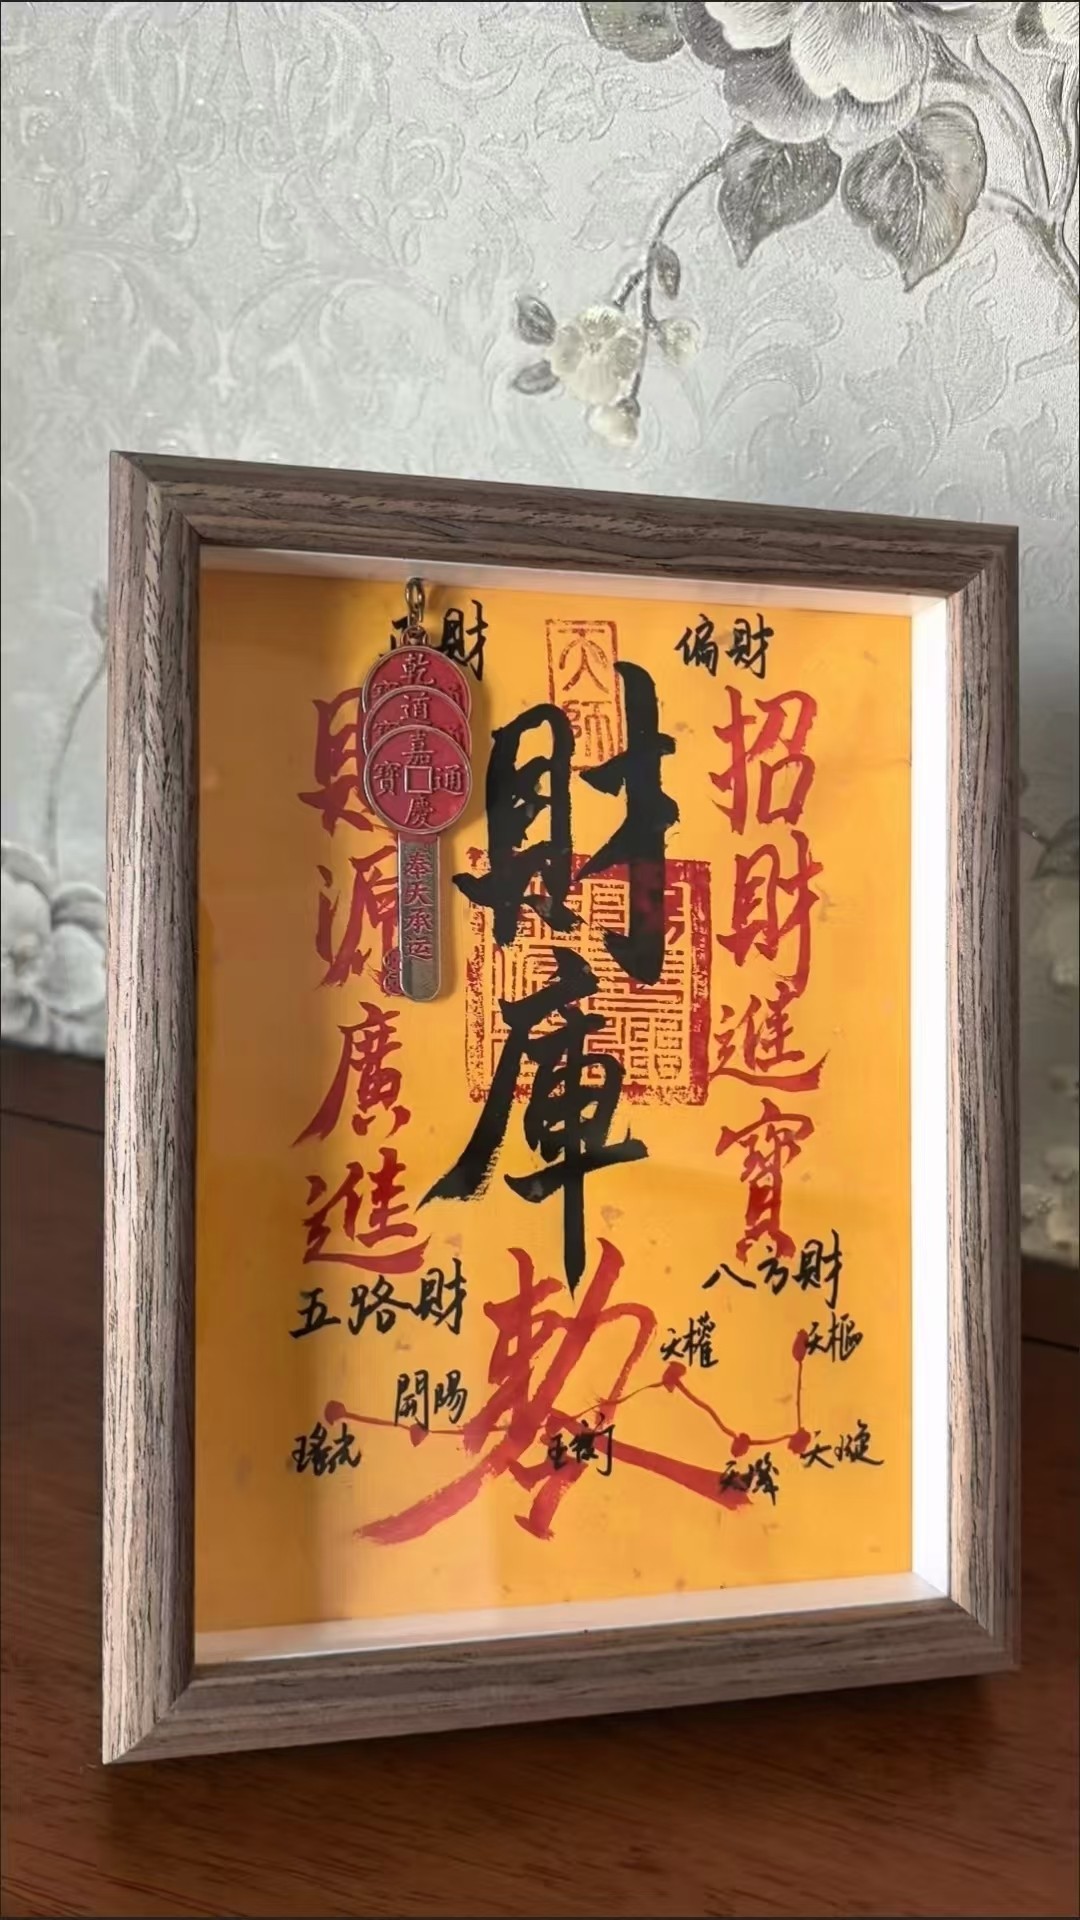 財
偏財
天師
財庫
敕
招財進寶
財源廣進
乾
道
嘉慶通寶
奉天承运
五路財
八方財
天樞
天璇
天璣
天權
玉衡
開陽
瑤光